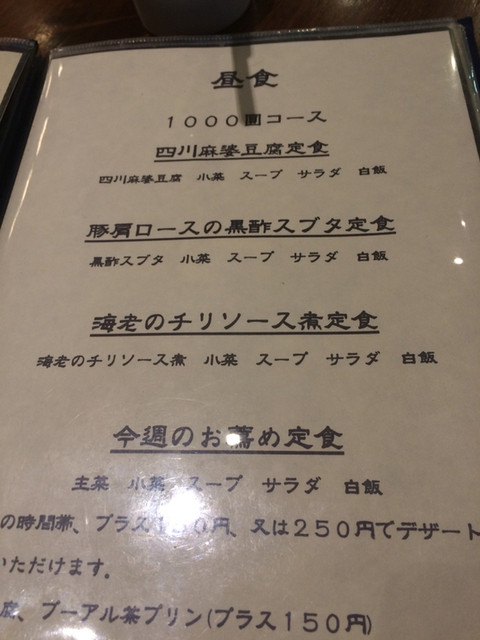 昼食
1000圓コース
四川麻婆豆腐定食
四川麻婆豆腐 小菜 スープ サラダ 白飯
豚肩ロースの黒酢スブタ定食
黒酢スブタ 小菜 スープ サラダ 白飯
海老のチリソース煮定食
海老のチリソース煮 小菜 スープ サラダ 白飯
今週のお薦め定食
主菜 小菜 スープ サラダ 白飯
の時間帯、プラス150円、又は250円でデザート
いただけます。
腐、プーアル茶プリン(プラス150円)